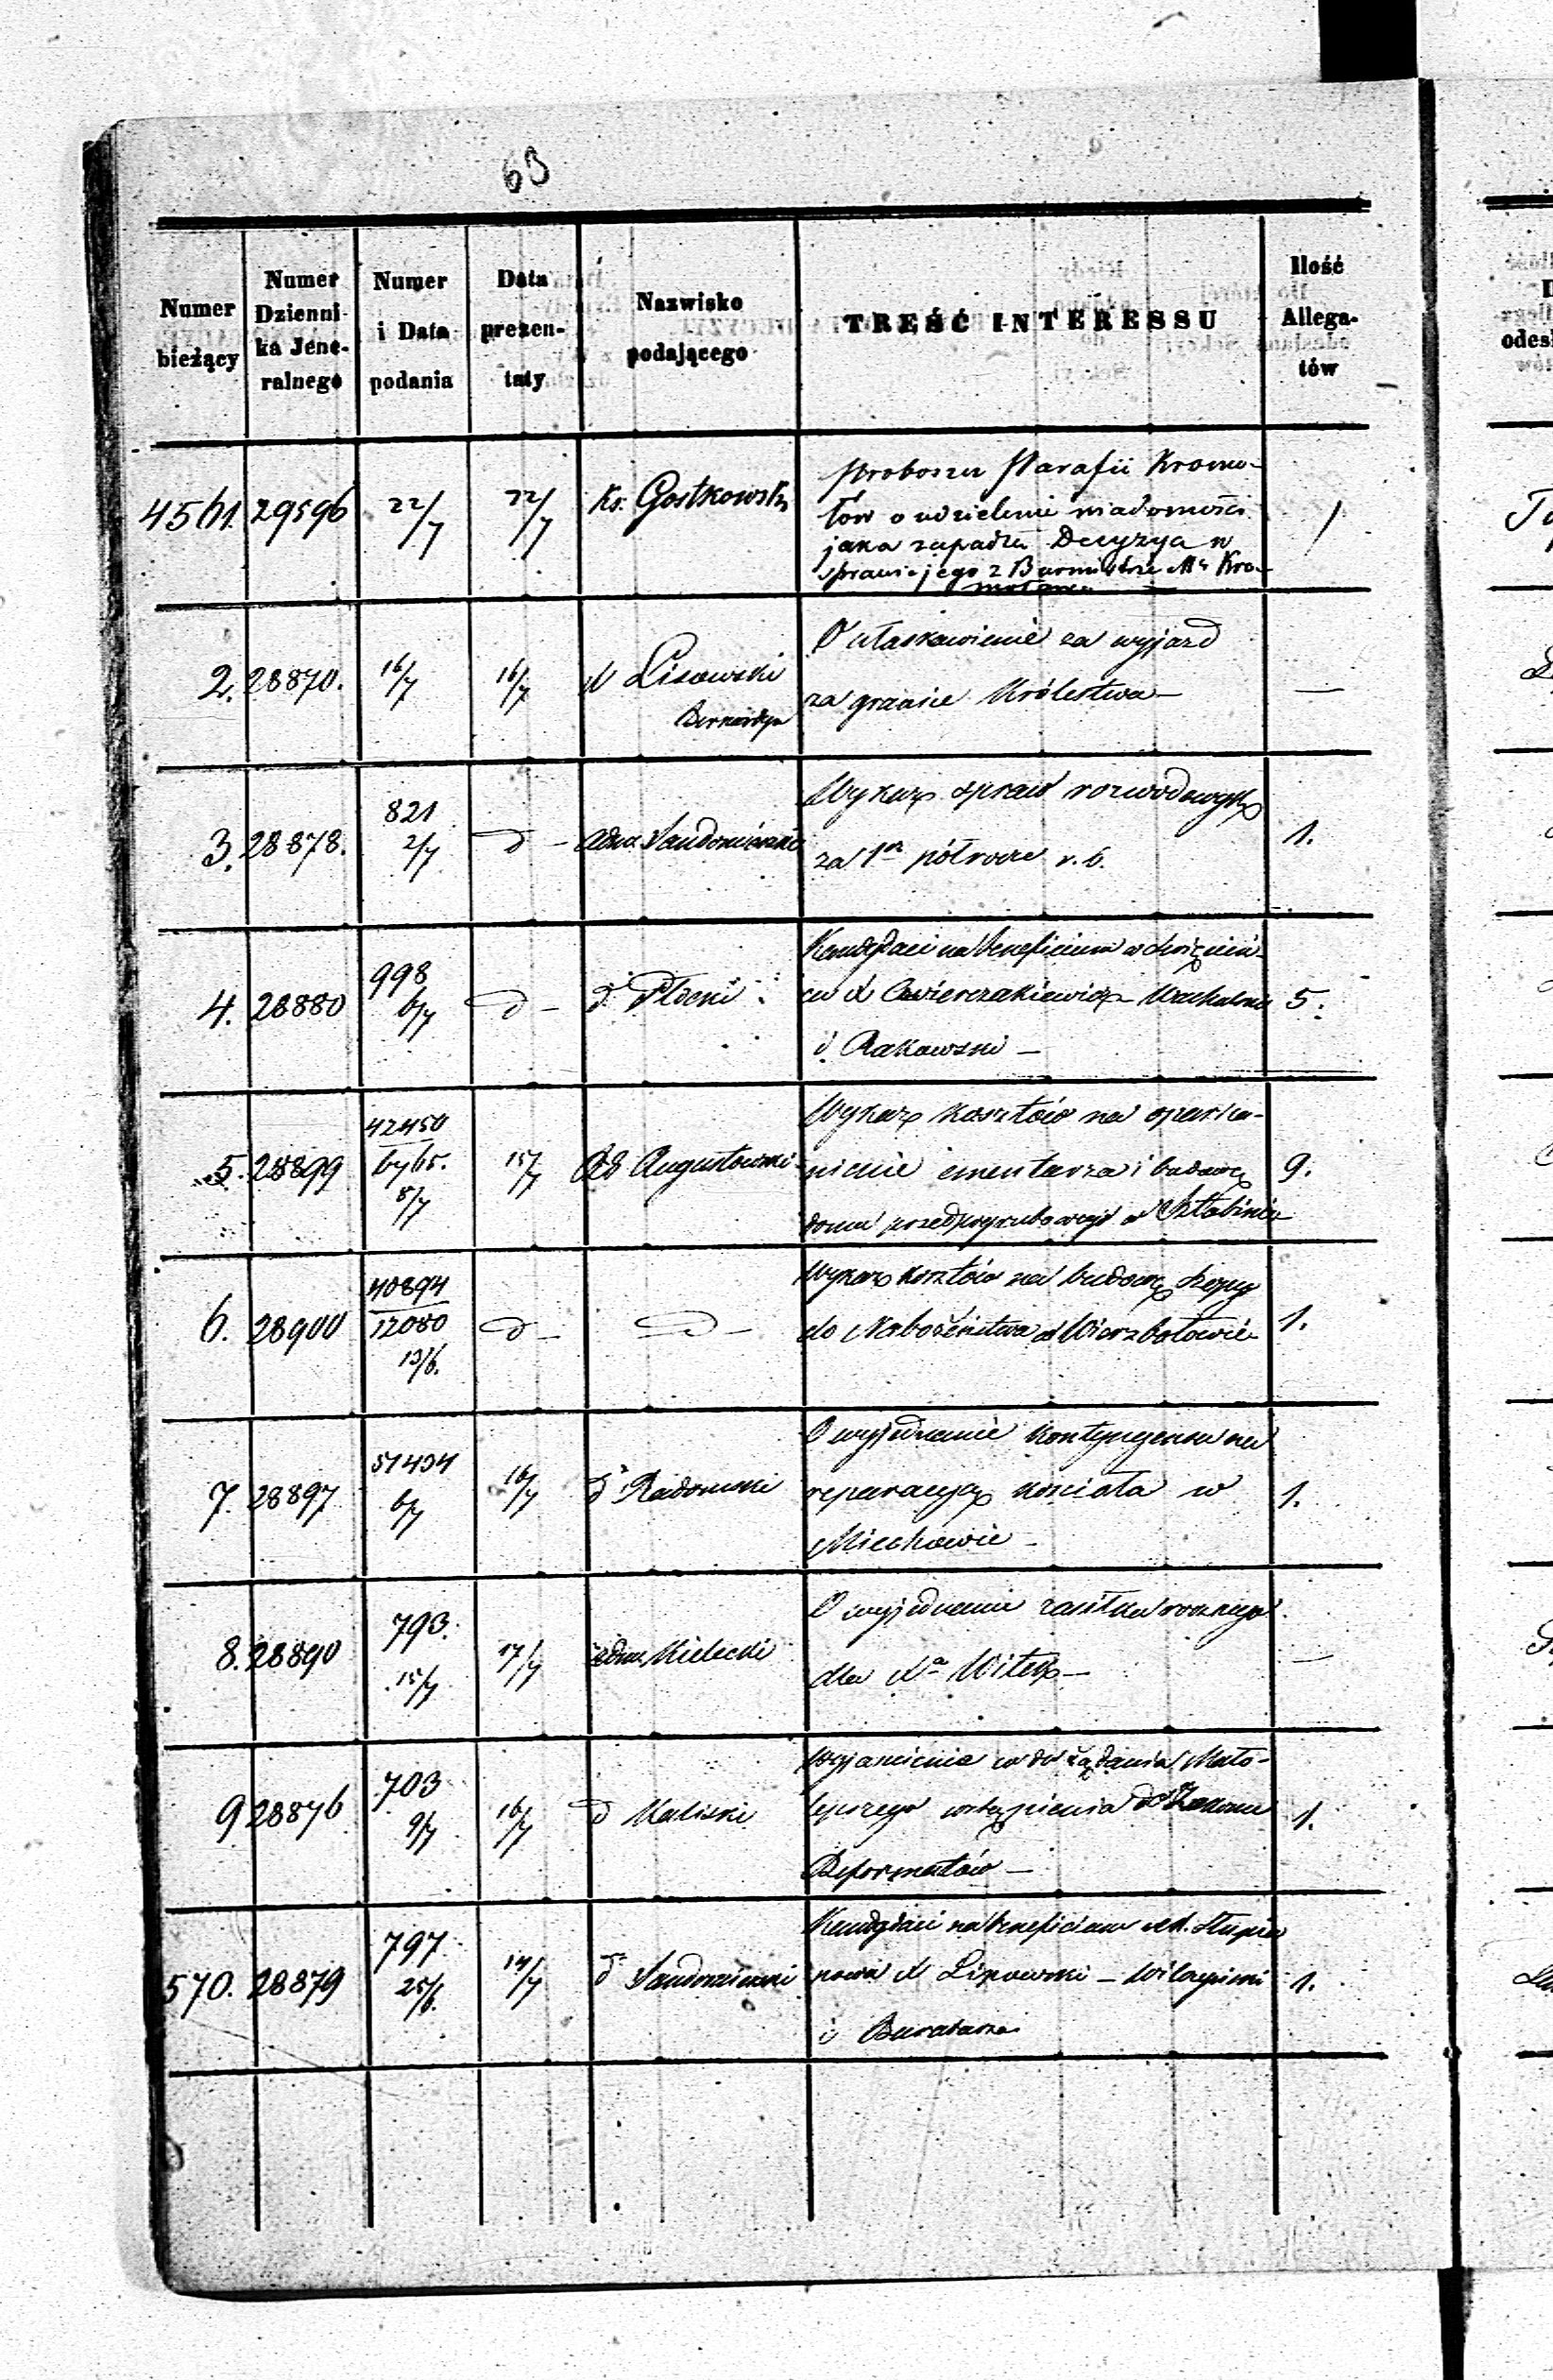 63
Numer bieżący
Numer Dzienni- ka Jene- ralnego
Numer i Data podania
Data prezen- taty
Nazwisko podającego
TREŚĆ INTERESSU
Ilość Allega- tów
4561. 29596 22/7 22/7 Ks. Gostkowski
Proboszcz Parafii Kromo-
łów o udzielenie wiadomości
jaka zapadła Decyzya w
sprawie jego z Burmistrze Mta Kro-
mołowa
1
2. 28870. 16/7 16/7 X Lisowski
Bernardyn
O ułaskawienie za wyjazd
za granice Królestwa —
—
3. 28878. 821 2/7 d – Adm. Sandomierski
Wykaz spraw rozwodowych
za 1sze półrocze r. b.
1.
4. 28880 998 6/7 d – dto Płocki
Kandydaci na beneficium w
X Ćwierczakiewicz –
i Rakowski —
5.
5. 28899 42450 / 6765. 8/7 15/7 Rd Augustowski
Wykaz kosztów na oparka-
nienie cmentarza i budowę
domu przedpogrzebowego w Sztabinie
9.
6. 28900 40894 / 12080 13/6. d – d –
Wykaz kosztów na budowę szopy
do Nabożeństwa w Wierzbołowie
1.
7. 28897 51434 6/7 16/7 dto Radomski
O wyjednanie kontyngensu na
reparacyę kościoła w
Miechowie –
1.
8. 28890 793. 15/7 17/7 Adm. Kielecki
O wyjednanie zasiłku rocznego
dla Xa —
—
9 28876 703 9/7 16/7 d Kaliski
Wyjaśnienie co do żądania Mało-
lepszego wstąpienia do Zakonu
Reformatów —
1.
570. 28879 797 25/6. 14/7 dto Sandomierski
Kandydaci na beneficium Słupia
nowa X Lipowski –
i
1.